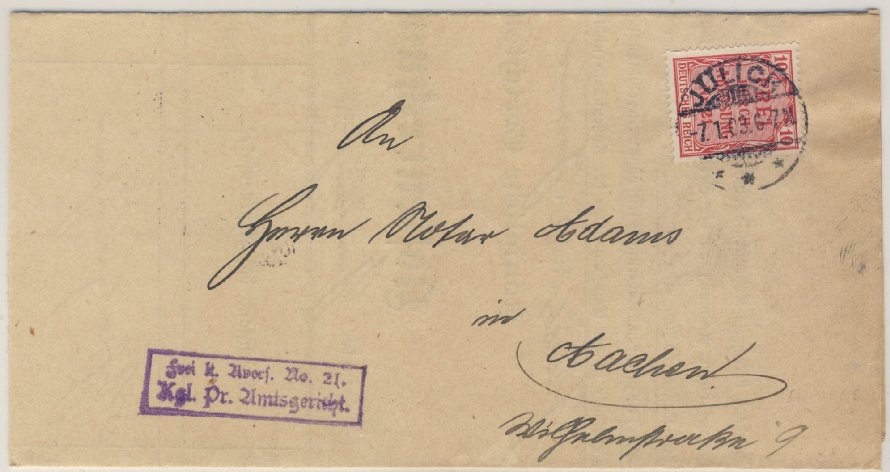 DEUTSCHES REICH
10 10
FREI
JÜLICH
-7.1.03.6-7N
An
Herrn Notar Adams
in
Aachen!
Wilhelmstraße 9
Frei lt. Avers. No. 21.
Kgl. Pr. Amtsgericht.